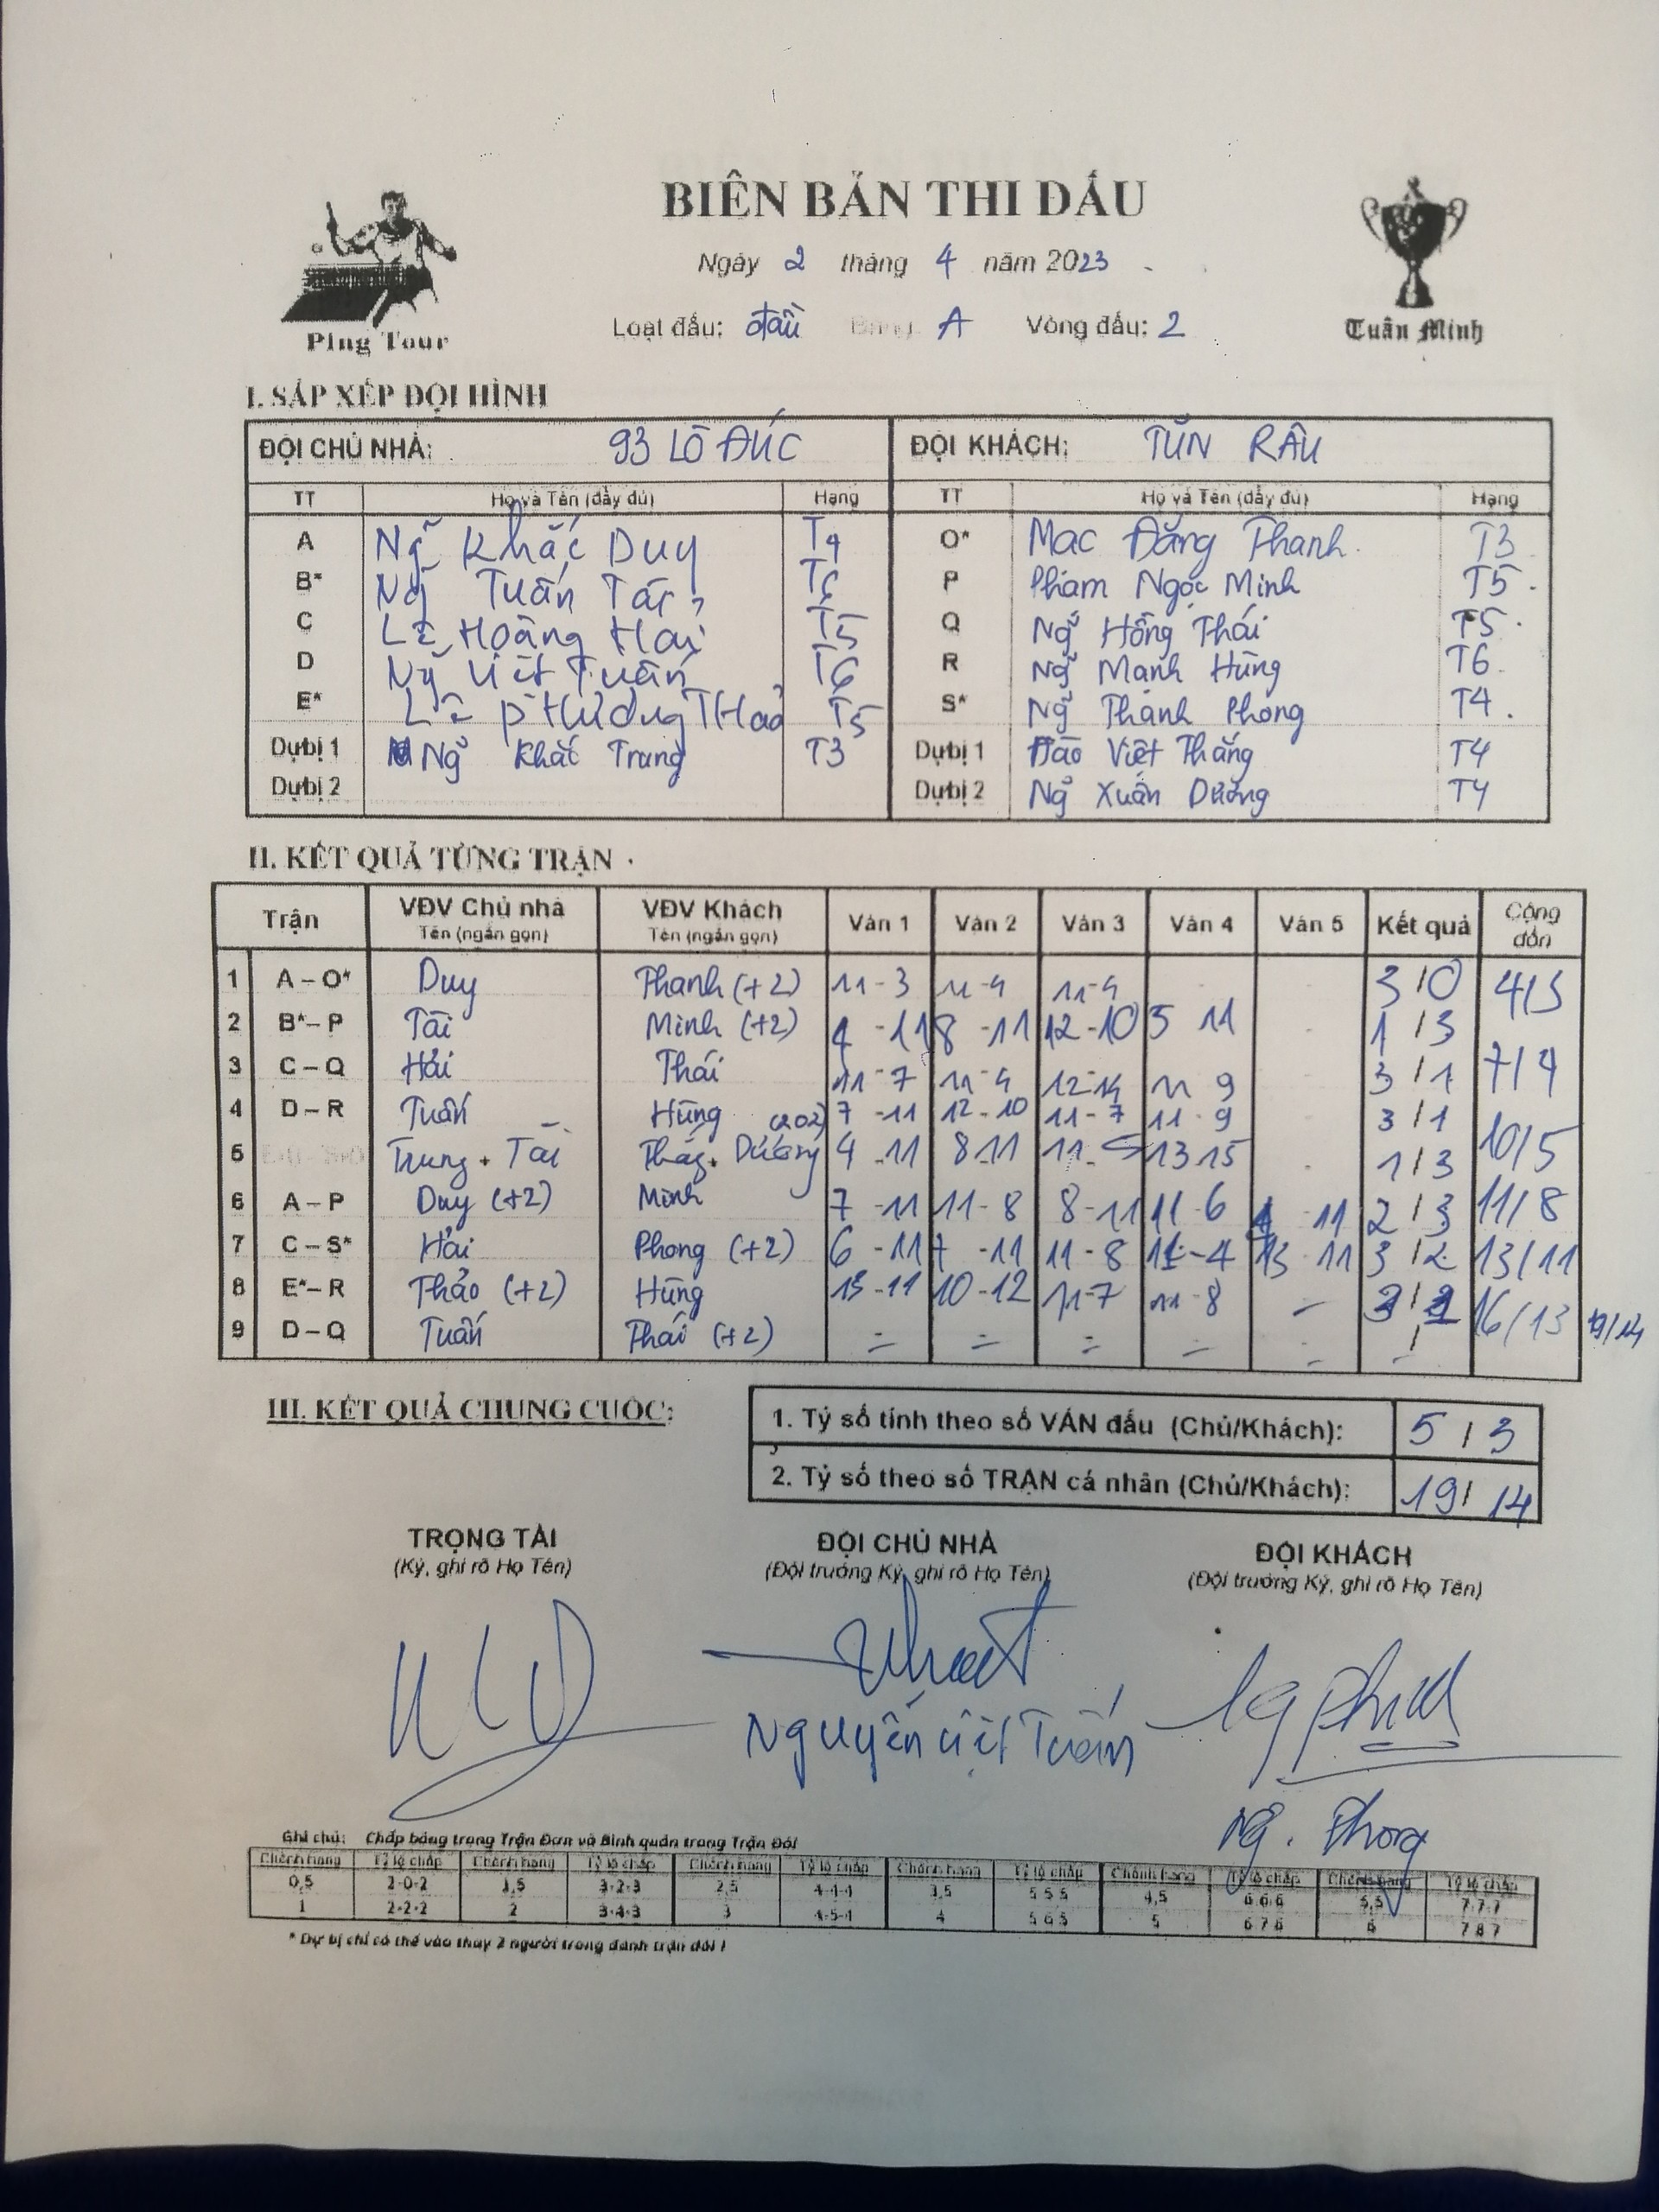 BIÊN BẢN THI ĐẤU
Ngày 2 tháng 4 năm 2023
Ping Tour
Loạt đấu: đầu Bảng: A Vòng đấu: 2
Tuấn Minh
I. SẮP XẾP ĐỘI HÌNH
ĐỘI CHỦ NHÀ: 93 LÒ ĐÚC ĐỘI KHÁCH: TUẤN RÂU
TT Họ và Tên (đầy đủ) Hạng TT Họ và Tên (đầy đủ) Hạng
A Ng~ Khắc Duy T4 O* Mạc Đăng Thanh T3
B* Ng~ Tuấn Tài T6 P Phạm Ngọc Minh T5
C Lê Hoàng Hải T5 Q Ng~ Hồng Thái T5
D Ng~ Việt Tuấn T6 R Ng~ Mạnh Hùng T6
E* Lê Phương Thảo T5 S* Ng~ Thanh Phong T4
Dự bị 1 Ng~ Khắc Trung T3 Dự bị 1 Đào Việt Thắng T4
Dự bị 2 Dự bị 2 Ng~ Xuân Dương T4
II. KẾT QUẢ TỪNG TRẬN
Trận VĐV Chủ nhà VĐV Khách Ván 1 Ván 2 Ván 3 Ván 4 Ván 5 Kết quả Cộng dồn
Tên (ngắn gọn) Tên (ngắn gọn)
1 A – O* Duy Thanh (+2) 11-3 11-9 11-9 3/0
2 B* – P Tài Minh (+2) 4-11 8-11 12-10 5 11 1/3 4/3
3 C – Q Hải Thái 11-7 11-9 12-14 11 9 3/1 7/4
4 D – R Tuấn Hùng 7-11 12-10 11-7 11-9 3/1
5 Trung + Tài Thắng + Dương (202) 4-11 8-11 11-5 13 15 1/3 10/5
6 A – P Duy (+2) Minh 7-11 11-8 8-11 11-6 4-11 2/3 11/8
7 C – S* Hải Phong (+2) 6-11 7-11 11-8 11-4 13 11 3/2 13/11
8 E* – R Thảo (+2) Hùng 13-11 10-12 11-7 11-8 – 3/1 16/13 19/14
9 D – Q Tuấn Thái (+2) – – – – – /
III. KẾT QUẢ CHUNG CUỘC:
1. Tỷ số tính theo số VÁN đấu (Chủ/Khách): 5/3
2. Tỷ số theo số TRẬN cá nhân (Chủ/Khách): 19/14
TRỌNG TÀI ĐỘI CHỦ NHÀ ĐỘI KHÁCH
(Ký, ghi rõ Họ Tên) (Đội trưởng Ký, ghi rõ Họ Tên) (Đội trưởng Ký, ghi rõ Họ Tên)
Nguyễn Việt Tuấn
Ng. Phong
Ghi chú: Chấp bóng trong Trận Đơn và Bình quân trong Trận Đôi
Chênh hạng Tỷ lệ chấp Chênh hạng Tỷ lệ chấp Chênh hạng Tỷ lệ chấp Chênh hạng Tỷ lệ chấp Chênh hạng Tỷ lệ chấp Chênh hạng Tỷ lệ chấp
0,5 2-0-2 1,5 3-2-3 2,5 4-4-4 3,5 5 5 5 4,5 6 6 6 5,5 7-7-7
1 2-2-2 2 3-4-3 3 4-5-4 4 5 6 5 5 6 7 6 6 7 8 7
* Dự bị chỉ có thể vào thay 2 người trong đánh trận đôi !